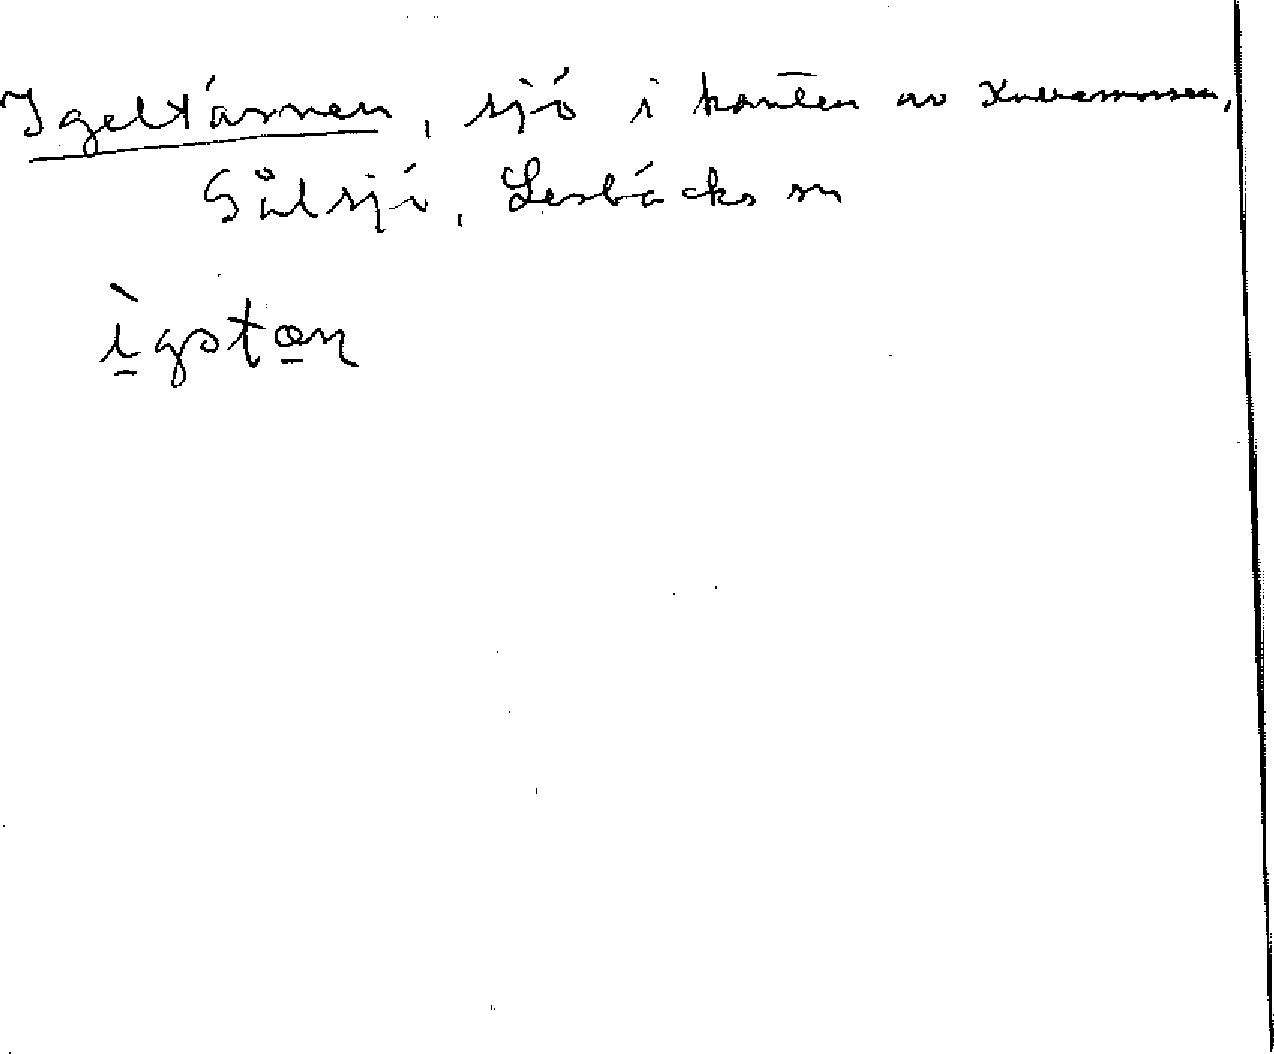 Igeltärnen, sjö i kanten av Kvarnmossen,
Gålsjö, Lerbäcks sn
ìgstan